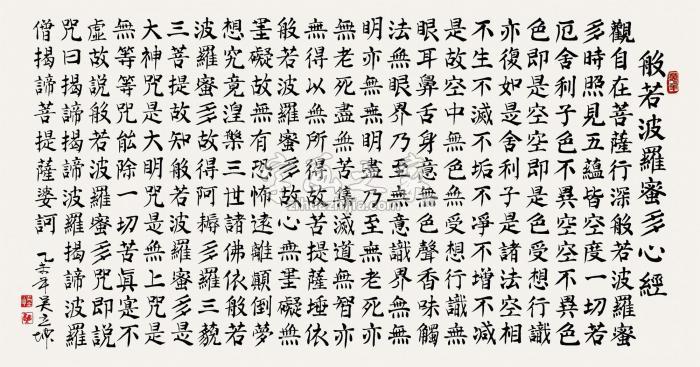 般若波羅蜜多心經
觀自在菩薩行深般若波羅蜜
多時照見五蘊皆空度一切苦
厄舍利子色不異空空不異色
色即是空空即是色受想行識
亦復如是舍利子是諸法空相
不生不滅不垢不淨不增不減
是故空中無色無受想行識無
眼耳鼻舌身意無色聲香味觸
法無眼界乃至無意識界無無
明亦無無明盡乃至無老死亦
無老死盡無苦集滅道無智亦
無得以無所得故菩提薩埵依
般若波羅蜜多故心無罣礙無
罣礙故無有恐怖遠離顛倒夢
想究竟涅槃三世諸佛依般若
波羅蜜多故得阿耨多羅三藐
三菩提故知般若波羅蜜多是
大神咒是大明咒是無上咒是
無等等咒能除一切苦真實不
虛故說般若波羅蜜多咒即說
咒曰揭諦揭諦波羅揭諦波羅
僧揭諦菩提薩婆訶
年吴坤